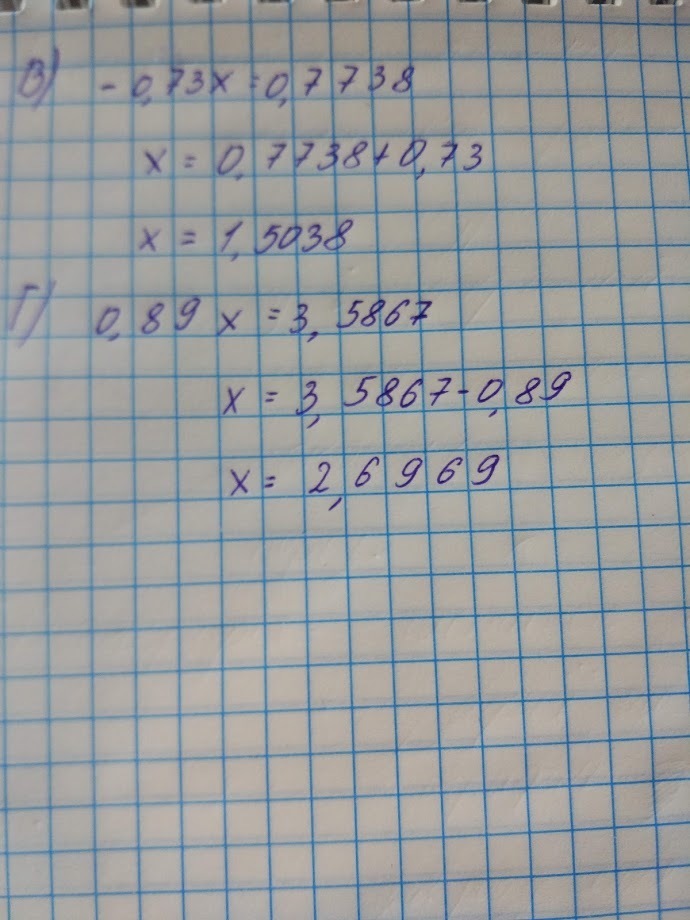 В) - 0,73x = 0,7738
x = 0,7738 + 0,73
x = 1,5038
Г) 0,89 x = 3,5867
x = 3,5867 - 0,89
x = 2,6969